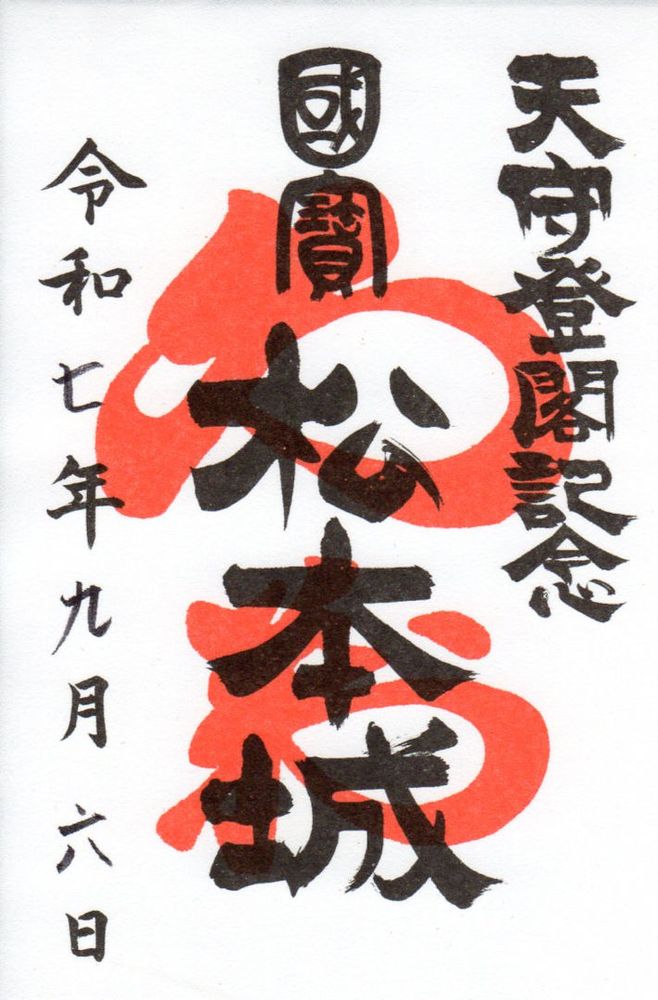 天守登閣記念
國寶
松本城
令和七年九月六日